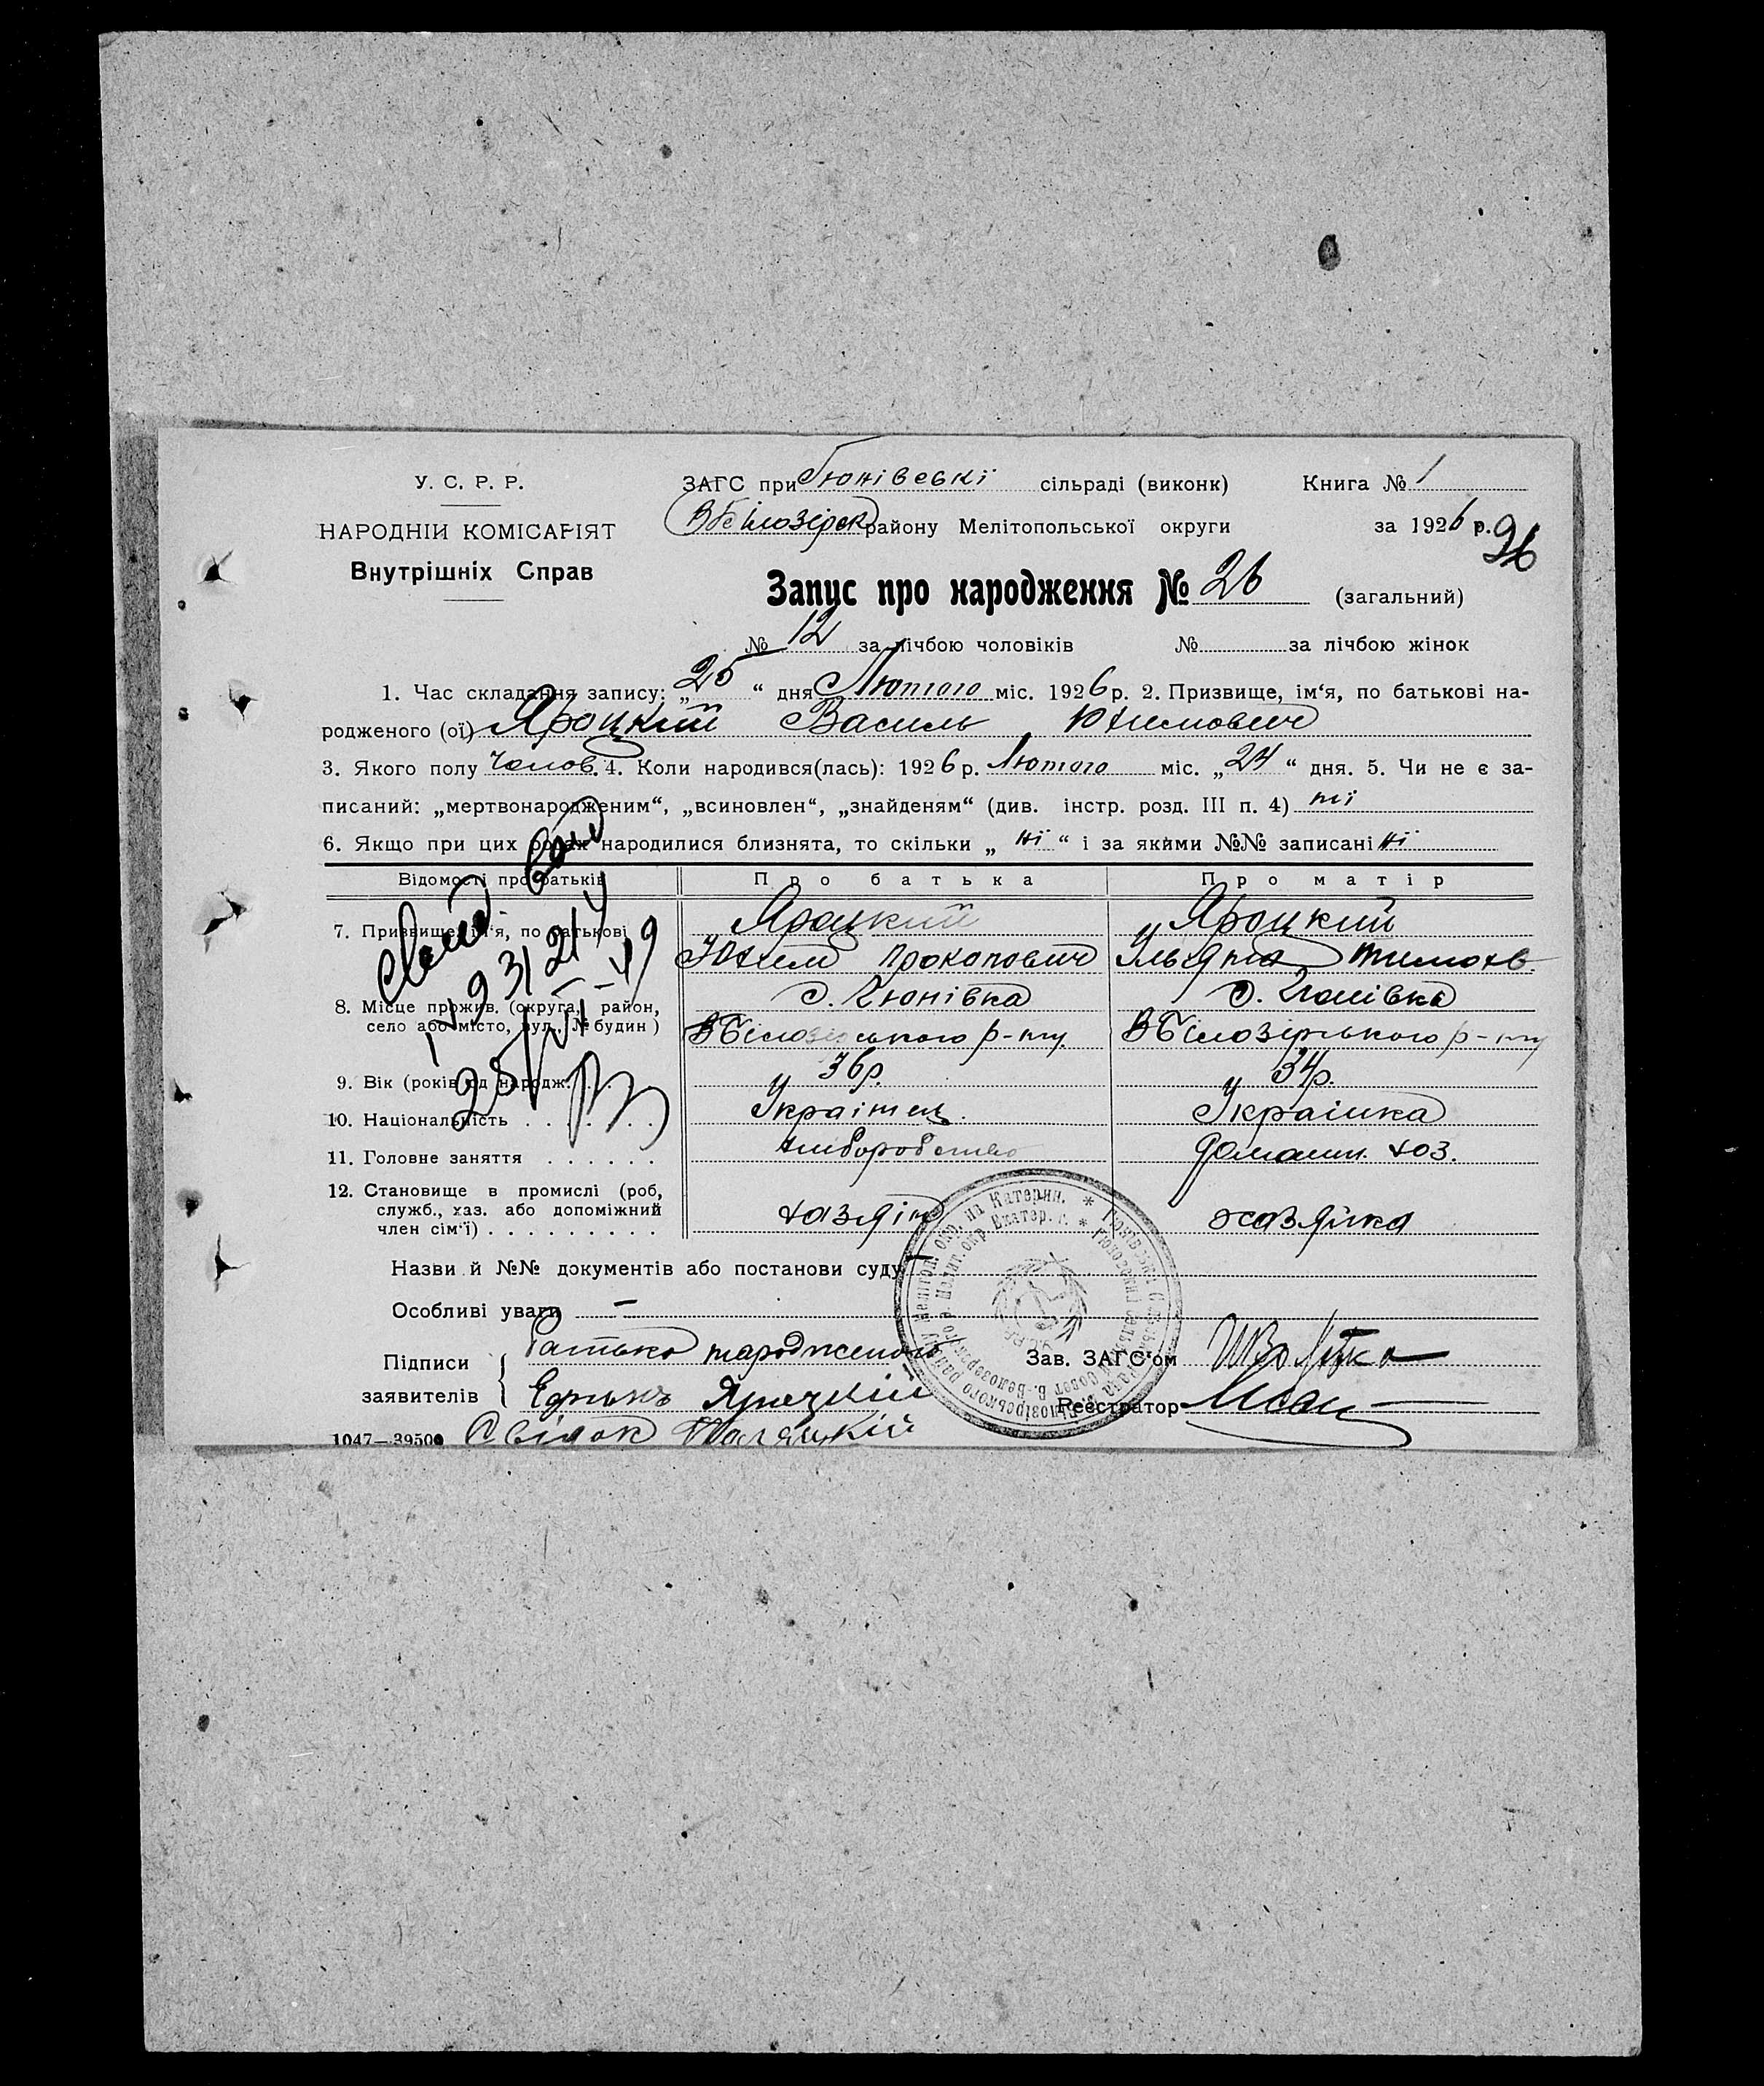 У. С. Р. Р.
НАРОДНІЙ КОМІСАРІЯТ
Внутрішніх Справ
ЗАГС при Гюнівські сільраді (виконк) Книга № 1
ВБілозірск району Мелітопольської округи за 1926 р.
96
Запис про народження № 26 (загальний)
№ 12 за лічбою чоловіків № за лічбою жінок
1. Час складання запису: „ 25 “ дня Лютого міс. 1926 р. 2. Призвище, ім‘я, по батькові на-
родженого (ої) Яроцкий Василь Юхимович
3. Якого полу Чолов. 4. Коли народився(лась): 1926 р. Лютого міс. „ 24 “ дня. 5. Чи не є за-
писаний: „мертвонародженим“, „всиновлен“, „знайденям“ (див. інстр. розд. III п. 4) ні
6. Якщо при цих родах народилися близнята, то скільки „ ні “ і за якими №№ записані ні
Відомості про батьків Про батька Про матір
7. Призвище, ім‘я, по батькові Яроцкий Яроцкий
Юхим Прокопович Ульяна Тимохв.
8. Місце прожив. (округа, район, с. Гюнівка с. Гюнівка
село або місто, вул., № будин) ВБілозірського р-ну ВБілозірського р-ну
9. Вік (років од народж. 36 р. 34 р.
10. Національність . . . . . . . Українец. Українка
11. Головне заняття . . . . . . хліборобство домашн. хоз.
12. Становище в промислі (роб,
служб., хаз. або допоміжний хазяїн хазяйка
член сім‘ї) . . . . . . . . .
Назви й №№ документів або постанови суду —
Особливі уваги —
Підписи Батько народженого Зав. ЗАГС‘ом
заявителів Ефимъ Яроцкій Реєстратор
1047—39500 Свідок